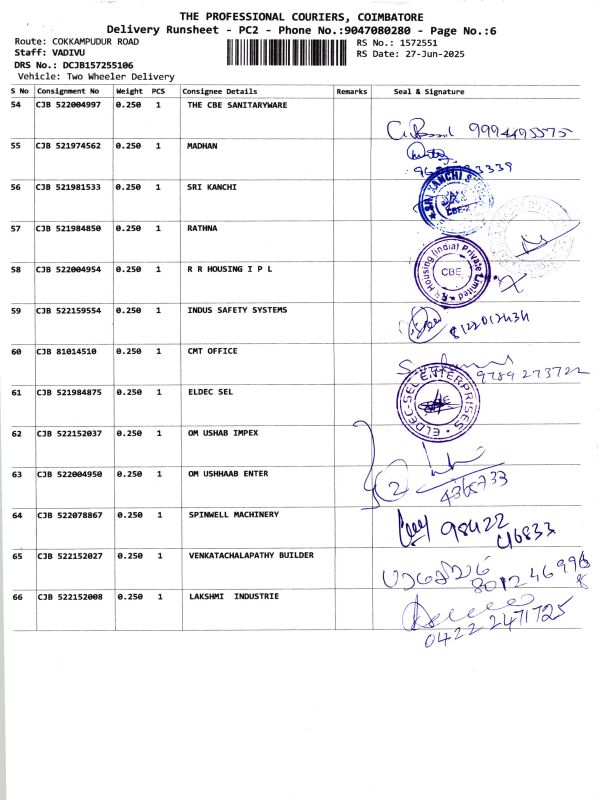 THE PROFESSIONAL COURIERS, COIMBATORE
Delivery Runsheet - PC2 - Phone No.:9047080280 - Page No.:6
Route: COKKAMPUDUR ROAD
RS No.: 1572551
Staff: VADIVU
RS Date: 27-Jun-2025
DRS No.: DCJB157255106
Vehicle: Two Wheeler Delivery
S No Consignment No Weight PCS Consignee Details Remarks Seal & Signature
54 CJB 522004997 0.250 1 THE CBE SANITARYWARE
9994495575
55 CJB 521974562 0.250 1 MADHAN
56 CJB 521981533 0.250 1 SRI KANCHI
57 CJB 521984850 0.250 1 RATHNA
58 CJB 522004954 0.250 1 R R HOUSING I P L
Housing (India) Private Limited
CBE
59 CJB 522159554 0.250 1 INDUS SAFETY SYSTEMS
60 CJB 81014510 0.250 1 CMT OFFICE
9789273722
61 CJB 521984875 0.250 1 ELDEC SEL
ELDEC-SEL ENTERPRISES
62 CJB 522152037 0.250 1 OM USHAB IMPEX
63 CJB 522004950 0.250 1 OM USHHAAB ENTER
2
4365733
64 CJB 522078867 0.250 1 SPINWELL MACHINERY
98422
65 CJB 522152027 0.250 1 VENKATACHALAPATHY BUILDER
66 CJB 522152008 0.250 1 LAKSHMI INDUSTRIE
0422 2471725